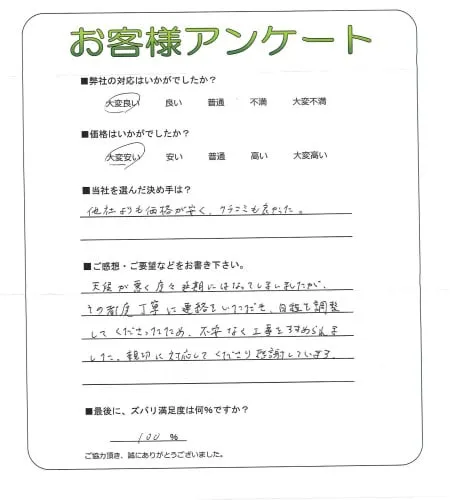 お客様アンケート
■弊社の対応はいかがでしたか？
大変良い 良い 普通 不満 大変不満
■価格はいかがでしたか？
大変安い 安い 普通 高い 大変高い
■当社を選んだ決め手は？
他社よりも価格が安く、クチコミも良かった。
■ご感想・ご要望などをお書き下さい。
天候が悪く度々延期にはなってしましましたが、
その都度丁寧に連絡をいただき、日程を調整
してくださったため、不安なく工事をすすめられま
した。親切に対応してくださり感謝しています。
■最後に、ズバリ満足度は何%ですか？
100 %
ご協力頂き、誠にありがとうございました。